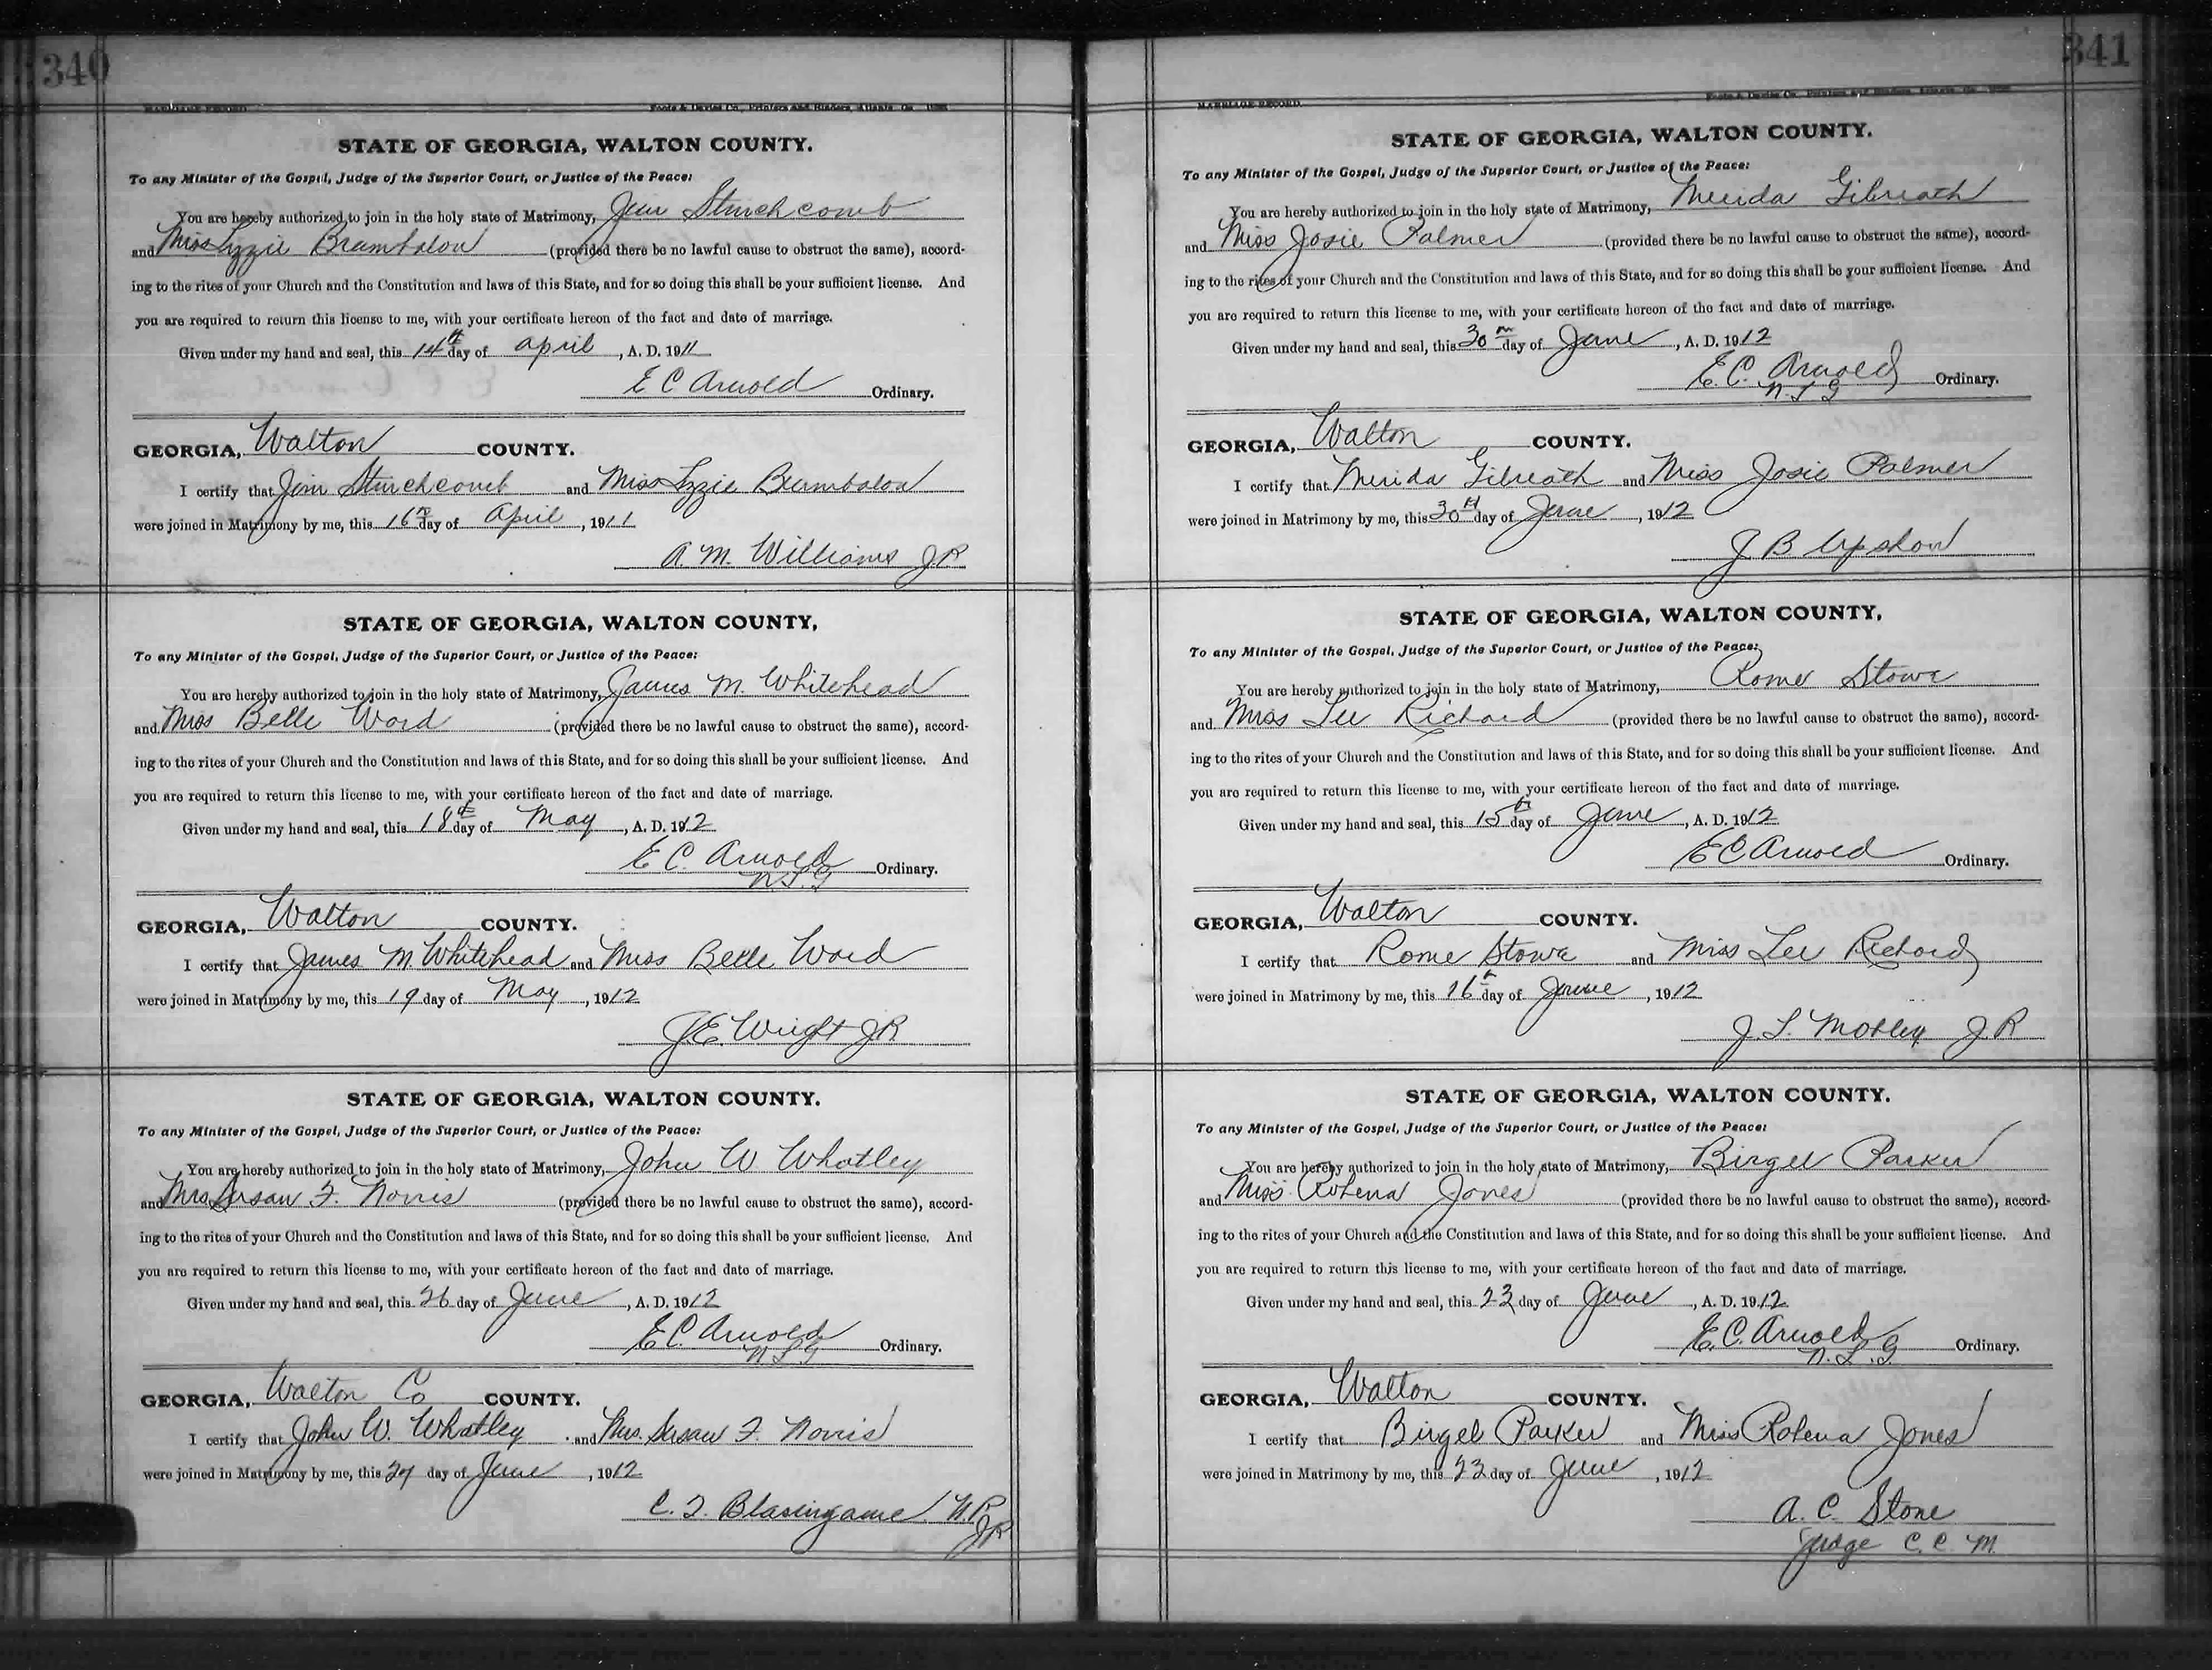 340
MARRIAGE RECORD. Foote & Davies Co., Printers and Binders, Atlanta, Ga.
STATE OF GEORGIA, WALTON COUNTY.
To any Minister of the Gospel, Judge of the Superior Court, or Justice of the Peace:
You are hereby authorized to join in the holy state of Matrimony, Jim Stinchcomb
and Miss Lizzie Brumbalow (provided there be no lawful cause to obstruct the same), accord-
ing to the rites of your Church and the Constitution and laws of this State, and for so doing this shall be your sufficient license. And
you are required to return this license to me, with your certificate hereon of the fact and date of marriage.
Given under my hand and seal, this 14th day of April, A. D. 1911
E C Arnold Ordinary.
GEORGIA, Walton COUNTY.
I certify that Jim Stinchcomb and Miss Lizzie Brumbalow
were joined in Matrimony by me, this 16th day of April, 1911
A. M. Williams J P.
STATE OF GEORGIA, WALTON COUNTY,
To any Minister of the Gospel, Judge of the Superior Court, or Justice of the Peace:
You are hereby authorized to join in the holy state of Matrimony, James M. Whitehead
and Miss Belle Ward (provided there be no lawful cause to obstruct the same), accord-
ing to the rites of your Church and the Constitution and laws of this State, and for so doing this shall be your sufficient license. And
you are required to return this license to me, with your certificate hereon of the fact and date of marriage.
Given under my hand and seal, this 18th day of May, A. D. 1912
E C. Arnold Ordinary.
N. L. G
GEORGIA, Walton COUNTY.
I certify that James M. Whitehead and Miss Belle Ward
were joined in Matrimony by me, this 19 day of May, 1912
J. E. Wright J P.
STATE OF GEORGIA, WALTON COUNTY.
To any Minister of the Gospel, Judge of the Superior Court, or Justice of the Peace:
You are hereby authorized to join in the holy state of Matrimony, John W Whatley
and Mrs Susan F. Norris (provided there be no lawful cause to obstruct the same), accord-
ing to the rites of your Church and the Constitution and laws of this State, and for so doing this shall be your sufficient license. And
you are required to return this license to me, with your certificate hereon of the fact and date of marriage.
Given under my hand and seal, this 26 day of June, A. D. 1912
E C. Arnold Ordinary.
N L G
GEORGIA, Walton Co COUNTY.
I certify that John W. Whatley and Mrs. Susan F. Norris
were joined in Matrimony by me, this 27 day of June, 1912
C. F. Blasingame N. P.
J P.
341
MARRIAGE RECORD. Foote & Davies Co., Printers and Binders, Atlanta, Ga.
STATE OF GEORGIA, WALTON COUNTY.
To any Minister of the Gospel, Judge of the Superior Court, or Justice of the Peace:
You are hereby authorized to join in the holy state of Matrimony, Merida Gilreath
and Miss Josie Palmer (provided there be no lawful cause to obstruct the same), accord-
ing to the rites of your Church and the Constitution and laws of this State, and for so doing this shall be your sufficient license. And
you are required to return this license to me, with your certificate hereon of the fact and date of marriage.
Given under my hand and seal, this 30th day of June, A. D. 1912
E. C. Arnold Ordinary.
N L G
GEORGIA, Walton COUNTY.
I certify that Merida Gilreath and Miss Josie Palmer
were joined in Matrimony by me, this 30th day of June, 1912
J B Upshaw
STATE OF GEORGIA, WALTON COUNTY,
To any Minister of the Gospel, Judge of the Superior Court, or Justice of the Peace:
You are hereby authorized to join in the holy state of Matrimony, Rome Stowe
and Miss Lee Richard (provided there be no lawful cause to obstruct the same), accord-
ing to the rites of your Church and the Constitution and laws of this State, and for so doing this shall be your sufficient license. And
you are required to return this license to me, with your certificate hereon of the fact and date of marriage.
Given under my hand and seal, this 15th day of June, A. D. 1912
E C Arnold Ordinary.
GEORGIA, Walton COUNTY.
I certify that Rome Stowe and Miss Lee Richard
were joined in Matrimony by me, this 16th day of June, 1912
J. L. Mobley J. P.
STATE OF GEORGIA, WALTON COUNTY.
To any Minister of the Gospel, Judge of the Superior Court, or Justice of the Peace:
You are hereby authorized to join in the holy state of Matrimony, Birgel Parker
and Miss Rohena Jones (provided there be no lawful cause to obstruct the same), accord-
ing to the rites of your Church and the Constitution and laws of this State, and for so doing this shall be your sufficient license. And
you are required to return this license to me, with your certificate hereon of the fact and date of marriage.
Given under my hand and seal, this 23 day of June, A. D. 1912
E. C. Arnold Ordinary.
N. L. G
GEORGIA, Walton COUNTY.
I certify that Birgel Parker and Miss Rohena Jones
were joined in Matrimony by me, this 23 day of June, 1912
A. C. Stone
Judge C. C. M.